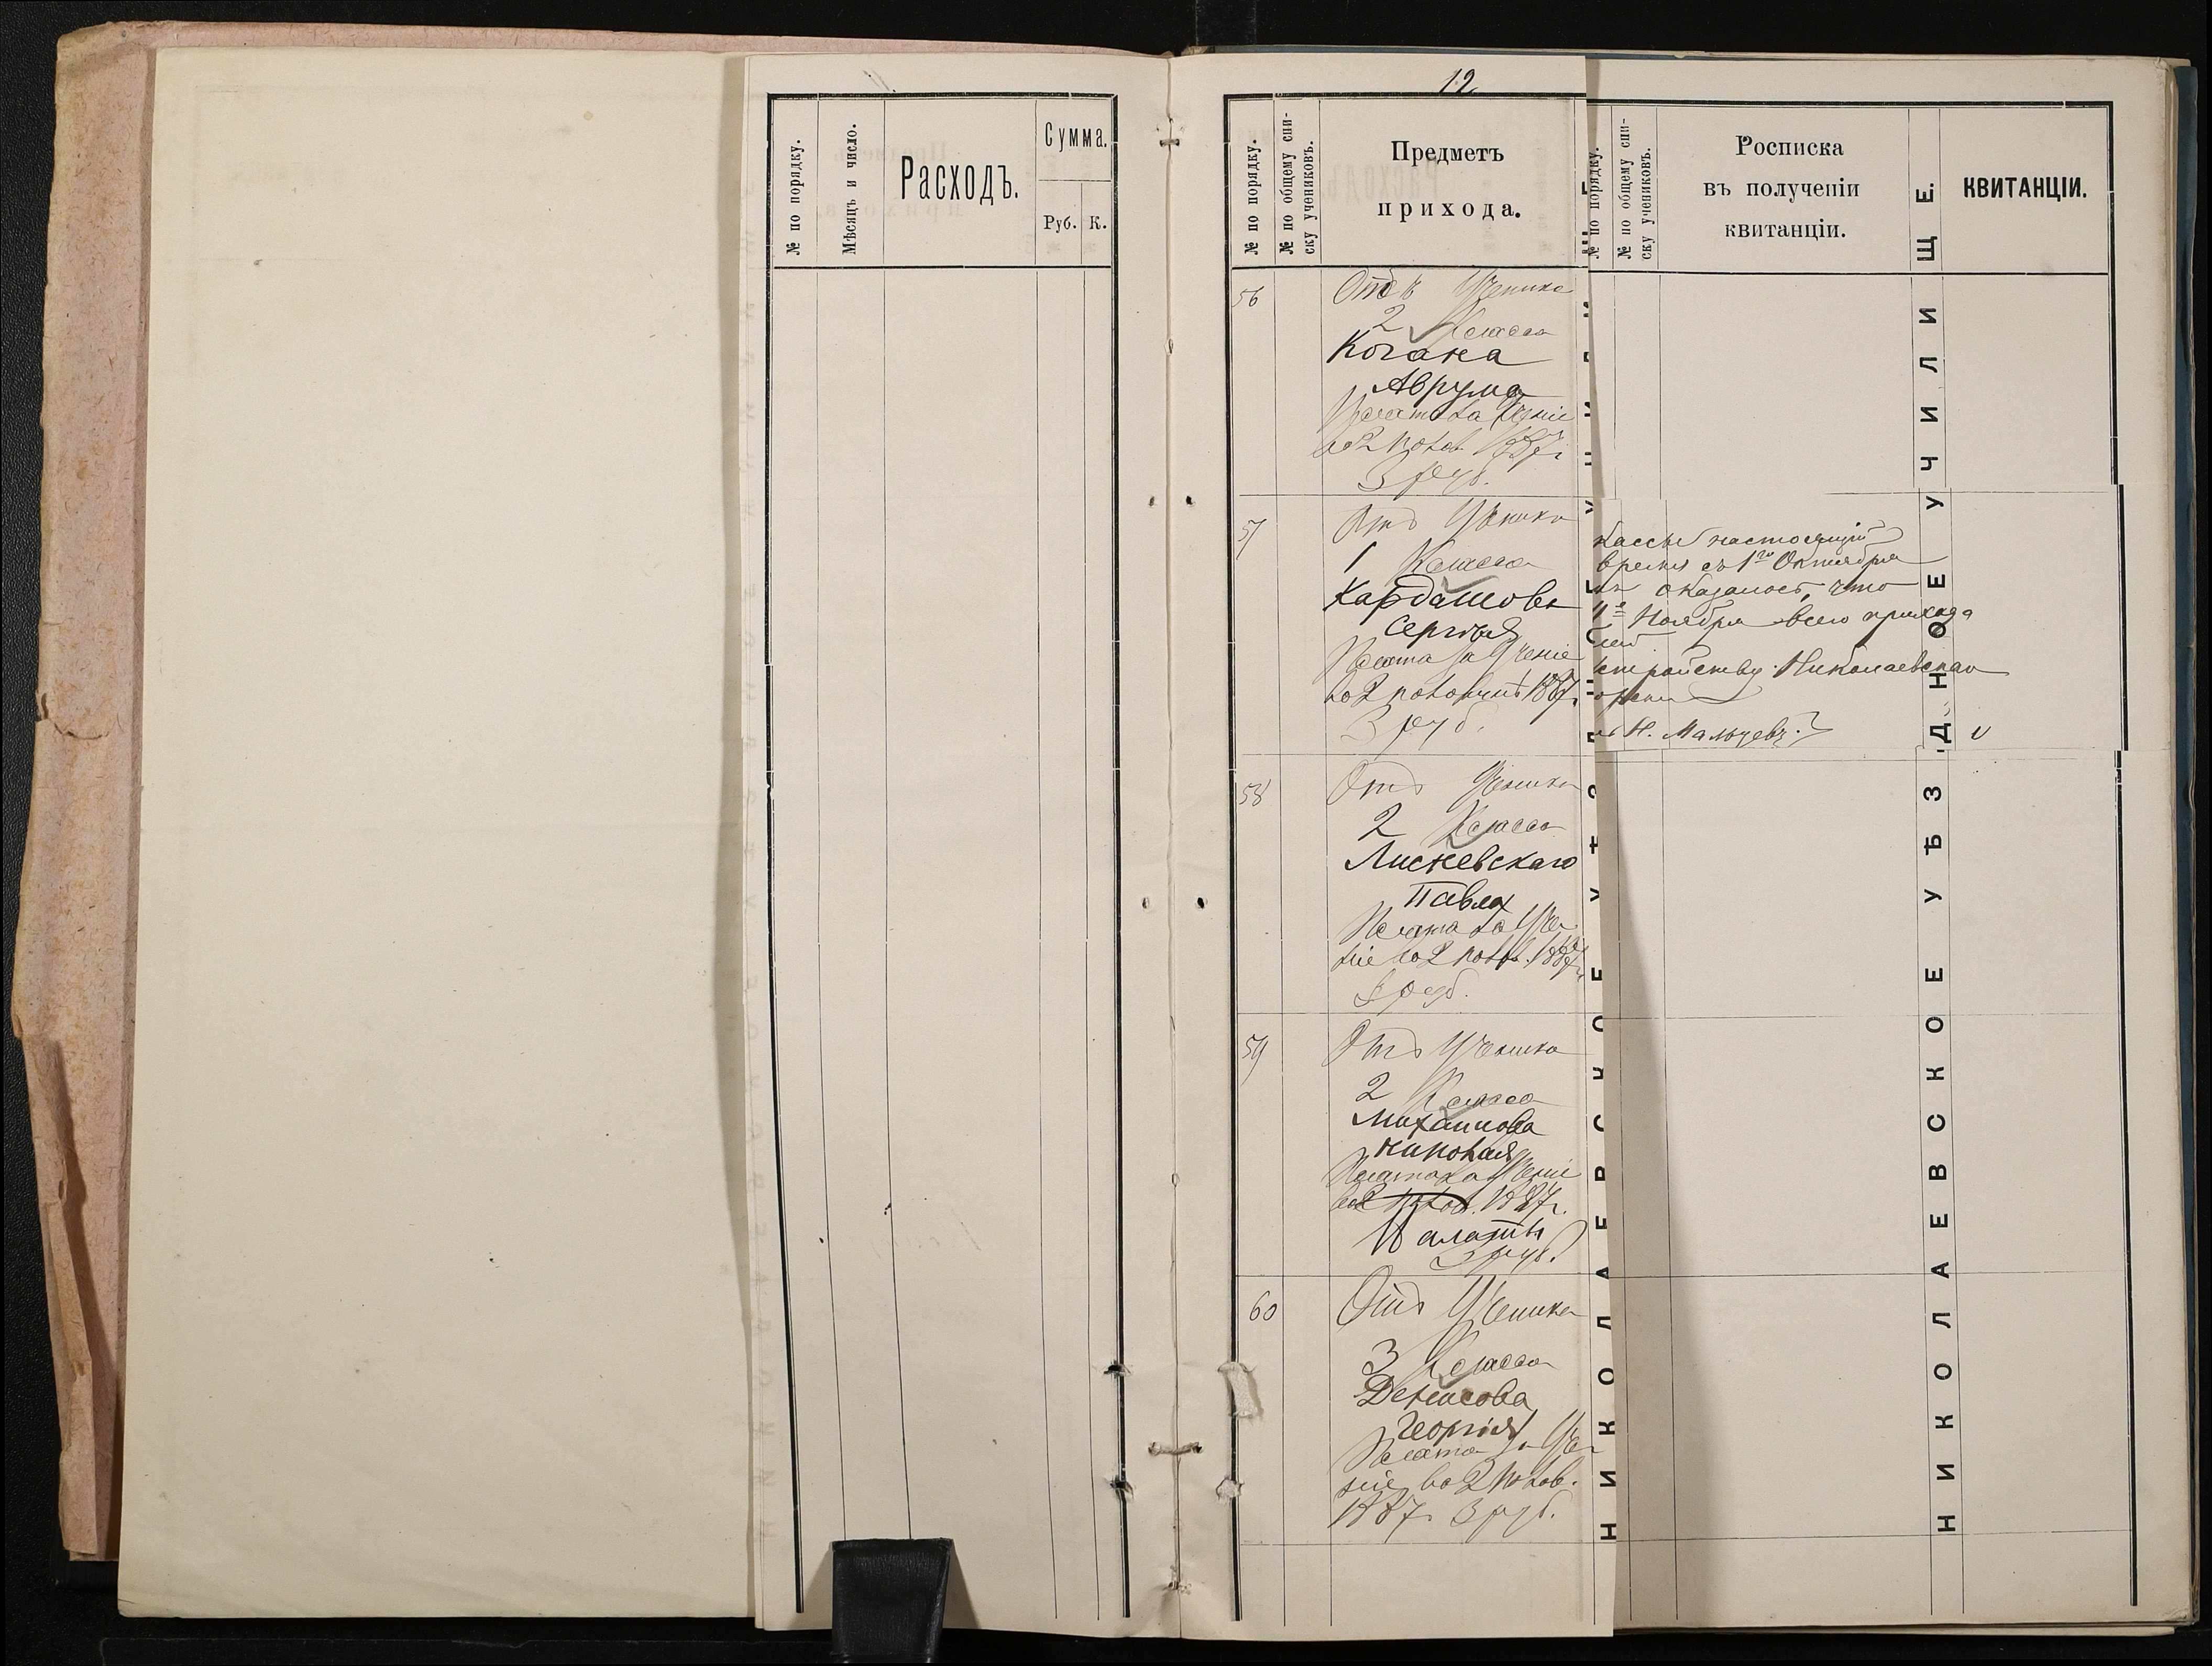 № по порядку.
Мѣсяцъ и число.
Расходъ.
Сумма.
Руб.
К.
12
№ по порядку.
№ по общему спи-
ску учениковъ.
Предметъ
прихода.
56
Отъ Ученика
2 Класса
Когана
Аврума
Плата за Ученіе
во 2 полов. 1887 г.
3 руб.
57
Отъ Ученика
1 Класса
Кардашова
Сергѣя
Плата за Ученіе
во 2 половинѣ 1887 г.
3 руб.
58
Отъ Ученика
2 Класса
Лисневскаго
Павла
Плата за Уче
ніе во 2 полов. 1887 г.
3 руб.
59
Отъ Ученика
2 Класса
Михаилова
Николая
Плата за Ученіе
во 2 полов. 1887 г.
3 руб.
60
Отъ Ученика
3 Класса
Денисова
Георгія
Плата за Уче
ніе во 2 полов.
1887 г. 3 руб.
№ по порядку.
№ по общему спи-
ску учениковъ.
Росписка
въ полученіи
квитанціи.
КВИТАНЦІИ.
кассы настоящій
время съ 1го Октября
оказалось, что
1е Ноября всего прихода
Николаевскаго
Н. Мальцевъ.
НИКОЛАЕВСКОЕ УѢЗДНОЕ УЧИЛИЩЕ.